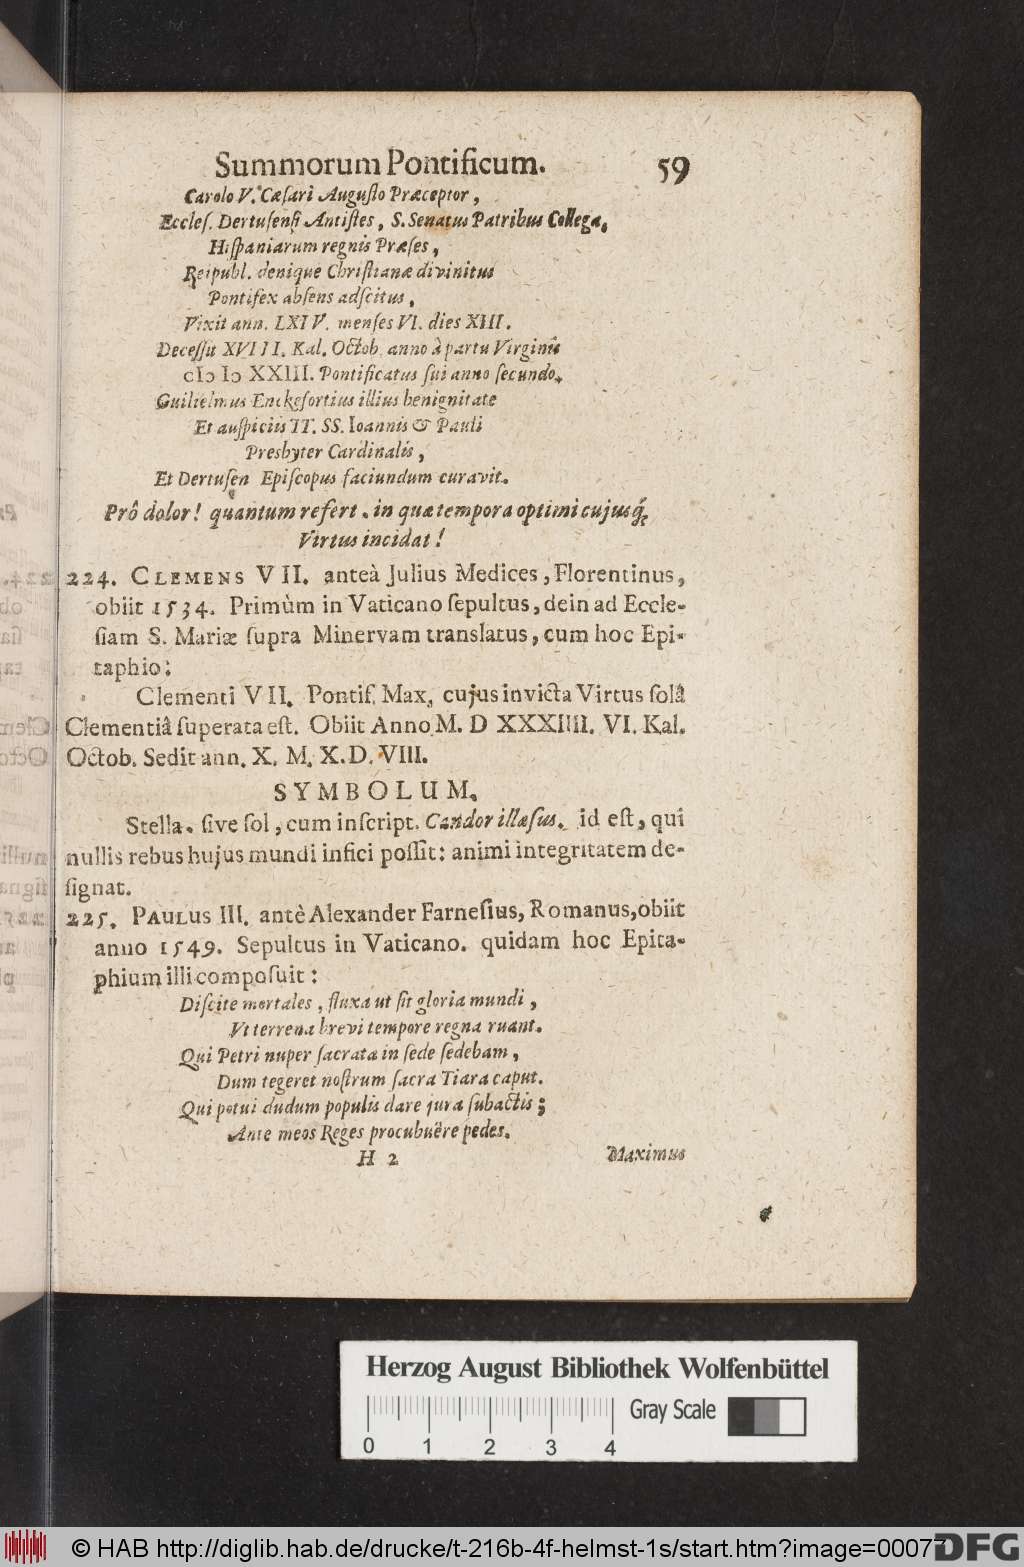 Summorum Pontificum. 59
Carolo V. Cæſari Auguſto Præceptor,
Eccleſ. Dertuſenſi Antiſtes, S. Senatus Patribus Collega,
Hiſpaniarum regnis Præſes,
Reipubl. denique Chriſtianæ divinitus
Pontifex abſens adſcitus,
Vixit ann. LXIV. menſes VI. dies XIII.
Deceſſit XVIII. Kal. Octob. anno à partu Virginis
cIɔ Iɔ XXIII. Pontificatus ſui anno ſecundo.
Guilielmus Enckefortius illius benignitate
Et auſpiciis IT. SS. Ioannis & Pauli
Presbyter Cardinalis,
Et Dertuſen Epiſcopus faciundum curavit.
Prô dolor! quantum refert. in quæ tempora optimi cujusq́;
Virtus incidat!
224. CLEMENS VII. anteà Julius Medices, Florentinus,
obiit 1534. Primùm in Vaticano ſepultus, dein ad Eccle-
ſiam S. Mariæ ſupra Minervam translatus, cum hoc Epi-
taphio:
Clementi VII. Pontif. Max, cujus invicta Virtus ſolâ
Clementiâ ſuperata eſt. Obiit Anno M. D XXXIIII. VI. Kal.
Octob. Sedit ann. X. M. X. D. VIII.
SYMBOLUM.
Stella. ſive ſol, cum inſcript. Candor illæſus. id eſt, qui
nullis rebus hujus mundi infici poſſit: animi integritatem de-
ſignat.
225. PAULUS III. antè Alexander Farneſius, Romanus, obiit
anno 1549. Sepultus in Vaticano. quidam hoc Epita-
phium illi compoſuit:
Diſcite mortales, fluxa ut ſit gloria mundi,
Vt terrena brevi tempore regna ruant.
Qui Petri nuper ſacrata in ſede ſedebam,
Dum tegeret noſtrum ſacra Tiara caput.
Qui potui dudum populis dare jura ſubactis;
Ante meos Reges procubuëre pedes.
H 2 Maximus
Herzog August Bibliothek Wolfenbüttel
Gray Scale
0 1 2 3 4
© HAB http://diglib.hab.de/drucke/t-216b-4f-helmst-1s/start.htm?image=00077
DFG